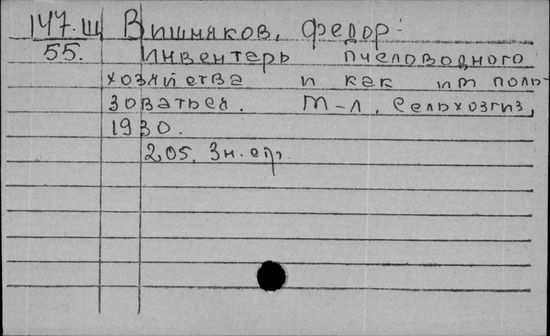 147.Щ Вишняков, Федор.
55. Инвентерь пчеловодного
хозяйства и как им поль-
зоваться. М-Л, Сельхозгиз,
1930.
205, 3н. стр.